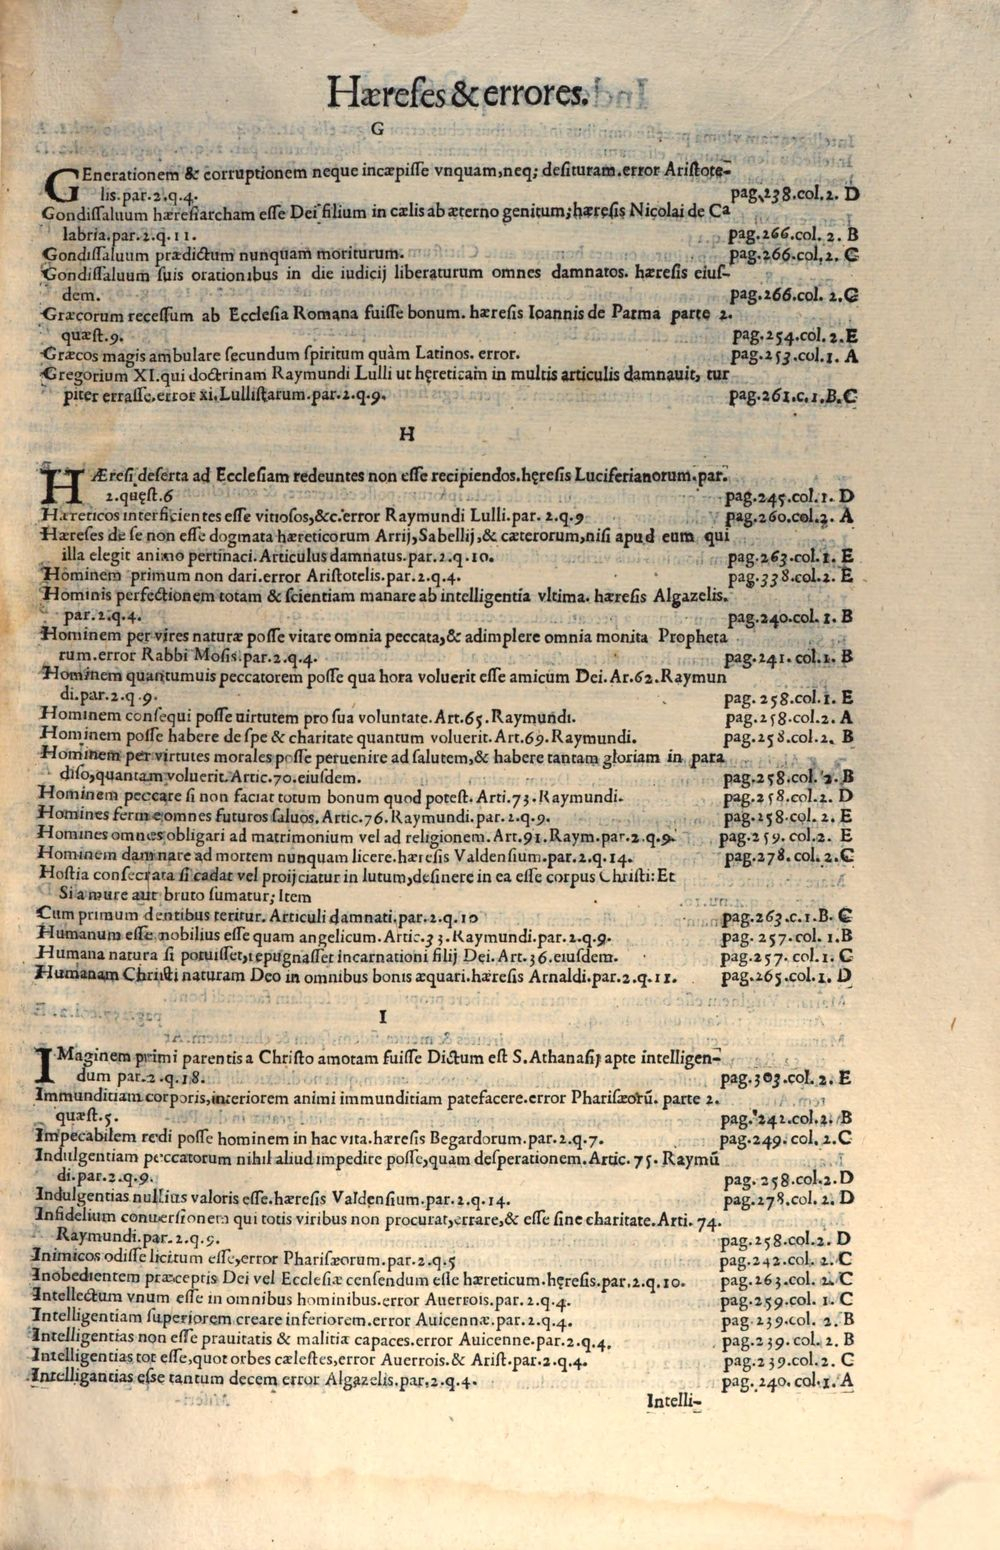 Hæreses & errores.
G
GEnerationem & corruptionem neque incæpisse vnquam,neq; desituram.error Aristote-
lis.par.2.q.4. pag.238.col.2. D
Gondissaluum hæresiarcham esse Dei filium in cælis ab æterno genitum;hæresis Nicolai de Ca
labria.par.2.q.11. pag.266.col.2. B
Gondissaluum prædictum nunquam moriturum. pag.266.col.2. C
Gondissaluum suis orationibus in die iudicij liberaturum omnes damnatos. hæresis eius-
dem. pag.266.col. 2.C
Græcorum recessum ab Ecclesia Romana fuisse bonum. hæresis Ioannis de Parma parte 2.
quæst.9. pag.254.col.2.E
Græcos magis ambulare secundum spiritum quàm Latinos. error. pag.253.col.1. A
Gregorium XI.qui doctrinam Raymundi Lulli ut hęreticam in multis articulis damnauit, tur
piter errasse.error xi.Lullistarum.par.2.q.9. pag.261.c.1.B.C
H
HÆresi deserta ad Ecclesiam redeuntes non esse recipiendos.hęresis Luciferianorum.par.
2.quęst.6 pag.245.col.1. D
Hæreticos interficientes esse vitiosos,&c.error Raymundi Lulli.par. 2.q.9 pag.260.col.2. A
Hæreses de se non esse dogmata hæreticorum Arrij,Sabellij,& cæterorum,nisi apud eum qui
illa elegit animo pertinaci.Articulus damnatus.par.2.q.10. pag.263.col.1. E
Hominem primum non dari.error Aristotelis.par.2.q.4. pag.338.col.2. E
Hominis perfectionem totam & scientiam manare ab intelligentia vltima. hæresis Algazelis.
par.2.q.4. pag.240.col.1. B
Hominem per vires naturæ posse vitare omnia peccata,& adimplere omnia monita Propheta
rum.error Rabbi Mosis.par.2.q.4. pag.241.col.1. B
Hominem quantumuis peccatorem posse qua hora voluerit esse amicum Dei. Ar.62.Raymun
di.par.2.q.9. pag.258.col.1. E
Hominem consequi posse uirtutem pro sua voluntate.Art.65.Raymundi. pag.258.col.2. A
Hominem posse habere de spe & charitate quantum voluerit.Art.69.Raymundi. pag.258.col.2. B
Hominem per virtutes morales posse peruenire ad salutem,& habere tantam gloriam in para
diso,quantam voluerit.Artic.70.eiusdem. pag.258.col. 2.B
Hominem peccare si non faciat totum bonum quod potest. Arti.73.Raymundi. pag.258.col.2. D
Homines ferme omnes futuros saluos.Artic.76.Raymundi.par.2.q.9. pag.258.col.2. E
Homines omnes obligari ad matrimonium vel ad religionem.Art.91.Raym.par.2.q.9. pag.259.col.2. E
Hominem damnare ad mortem nunquam licere.hæresis Valdensium.par.2.q.14. pag.278.col.2.C
Hostia consecrata si cadat vel proijciatur in lutum,desinere in ea esse corpus Christi:Et
Si a mure aut bruto sumatur; Item
Cum primum dentibus teritur.Articuli damnati.par.2.q.10 pag.263.c.1.B. C
Humanum esse nobilius esse quam angelicum.Artic.33.Raymundi.par.2.q.9. pag.257.col.1.B
Humana natura si potuisset,repugnasset incarnationi filij Dei. Art.36.eiusdem. pag.257.col.1. C
Humanam Christi naturam Deo in omnibus bonis æquari.hæresis Arnaldi.par.2.q.11. pag.265.col.1. D
I
IMaginem primi parentis a Christo amotam fuisse Dictum est S.Athanasij apte intelligen-
dum par.2.q.18. pag.303.col.2. E
Immunditiam corporis,interiorem animi immunditiam patefacere.error Pharisæorũ. parte 2.
quæst.5. pag.242.col.2. B
Impecabilem redi posse hominem in hac vita.hæresis Begardorum.par.2.q.7. pag.249.col.2.C
Indulgentiam peccatorum nihil aliud impedire posse,quam desperationem.Artic.75.Raymũ
di.par.2.q.9. pag.258.col.2.D
Indulgentias nullius valoris esse.hæresis Valdensium.par.2.q.14. pag.278.col.2. D
Infidelium conuersionem qui totis viribus non procurat,errare,& esse sine charitate.Arti.74.
Raymundi.par.2.q.9. pag.258.col.2. D
Inimicos odisse licitum esse,error Pharisæorum.par.2.q.5 pag.242.col.2. C
Inobedientem præceptis Dei vel Ecclesiæ censendum esse hæreticum.hęresis.par.2.q.10. pag.263.col.2.C
Intellectum vnum esse in omnibus hominibus.error Auerrois.par.2.q.4. pag.259.col.1. C
Intelligentiam superiorem creare inferiorem.error Auicennæ.par.2.q.4. pag.239.col.2. B
Intelligentias non esse prauitatis & malitiæ capaces.error Auicenne.par.2.q.4. pag.239.col.2. B
Intelligentias tot esse,quot orbes cælestes,error Auerrois.& Arist.par.2.q.4. pag.239.col.2. C
Intelligantias esse tantum decem error Algazelis.par.2.q.4. pag.240.col.1. A
Intelli-